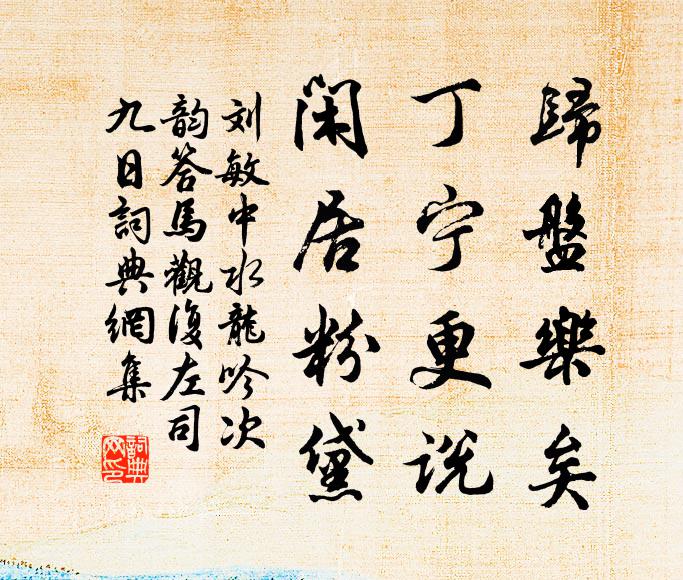 歸盤樂矣
丁宁更説
閑居粉黛
刘敏中水龍吟次
韵答馬觀復左司
九日詞典網集
詞典
网印